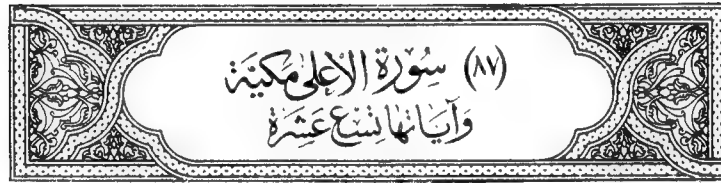 (٨٧) سُورَة الأعلى مَكيَّة
وَآيَاتها تِسْع عَشرَة